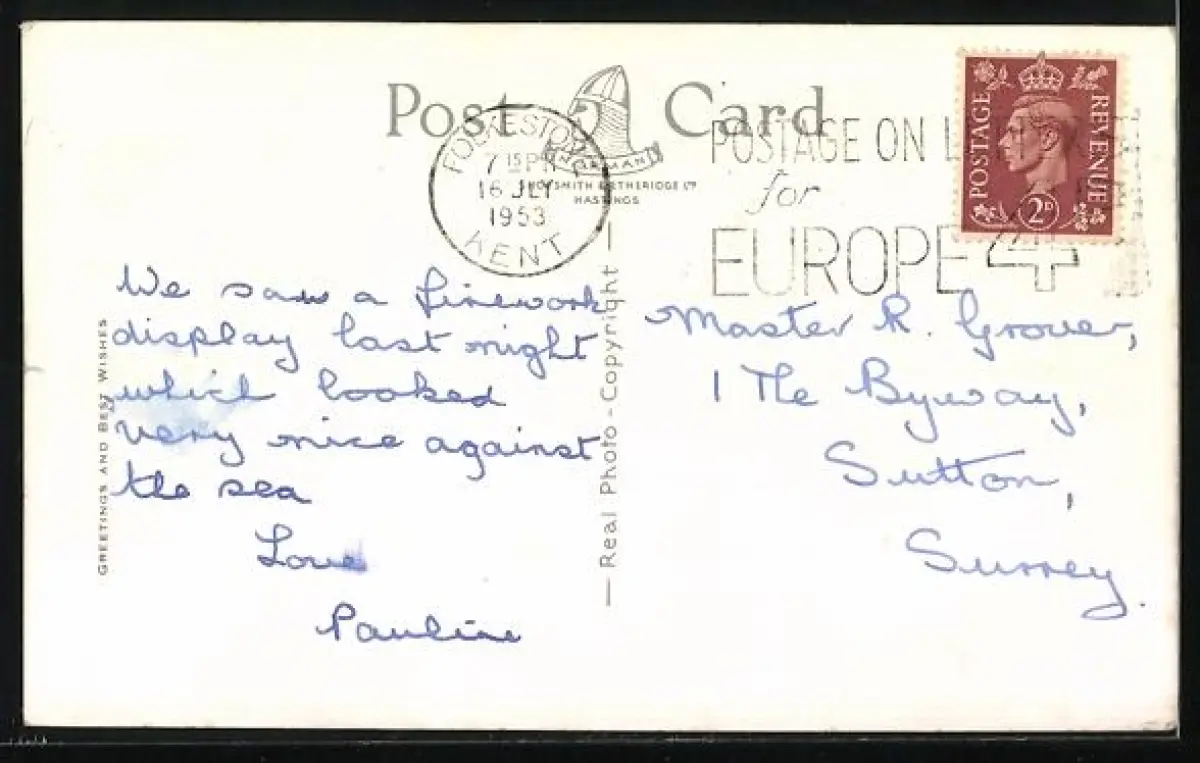 Post Card
FOLKESTONE
7 15 PM
16 JLY
1953
KENT
NORMAN
SHOESMITH & ETHERIDGE LTD
HASTINGS
POSTAGE ON
for
EUROPE 4D
POSTAGE
REVENUE
2D
GREETINGS AND BEST WISHES
We saw a firework
display last night
which looked
very nice against
the sea
Love
Pauline
— Real Photo - Copyright —
Master R. Grover,
1 The Byway,
Sutton,
Surrey.